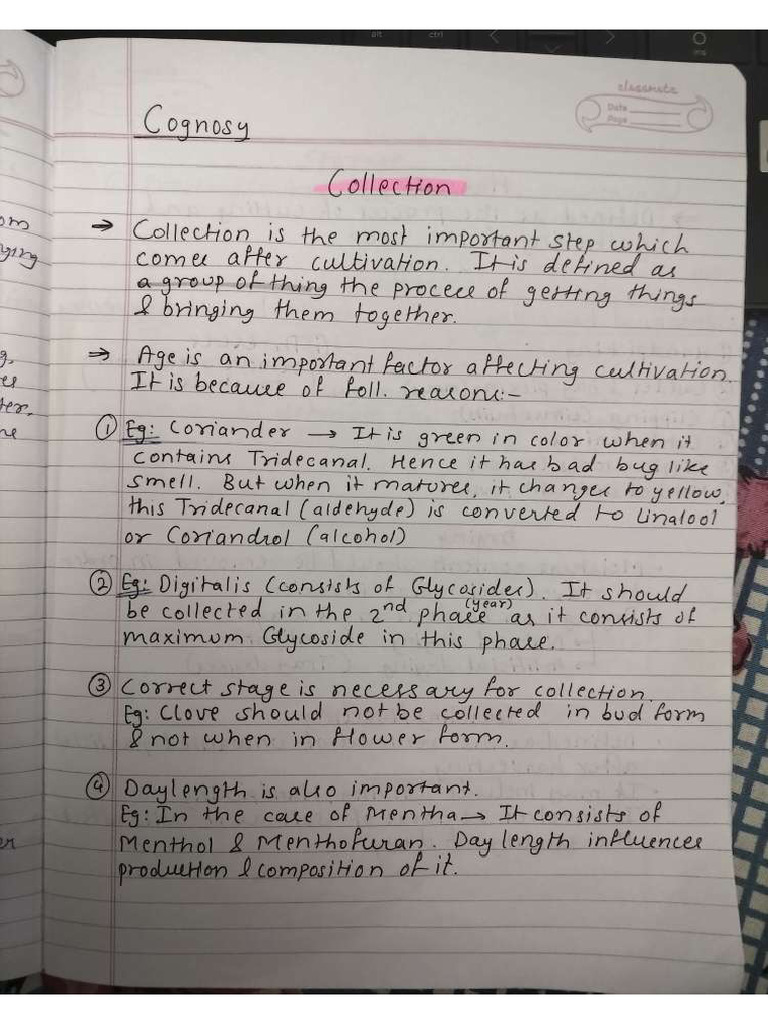 classmate
Date
Page
Cognosy
Collection
→ Collection is the most important step which
comes after cultivation. It is defined as
a group of thing the process of getting things
& bringing them together.
⇒ Age is an important factor affecting cultivation.
It is because of foll. reasons:-
① Eg: Coriander → It is green in color when it
contains Tridecanal. Hence it has bad bug like
smell. But when it matures, it changes to yellow,
this Tridecanal (aldehyde) is converted to Linalool
or Coriandrol (alcohol)
② Eg: Digitalis (consists of Glycosides). It should
be collected in the 2nd phase (year) as it consists of
maximum Glycoside in this phase.
③ Correct stage is necessary for collection.
Eg: Clove should not be collected in bud form
& not when in flower form.
④ Daylength is also important.
Eg: In the case of Mentha → It consists of
Menthol & Menthofuran. Day length influences
production & composition of it.
om
ying
g,
es
ter.
ne
er
alt
ctrl